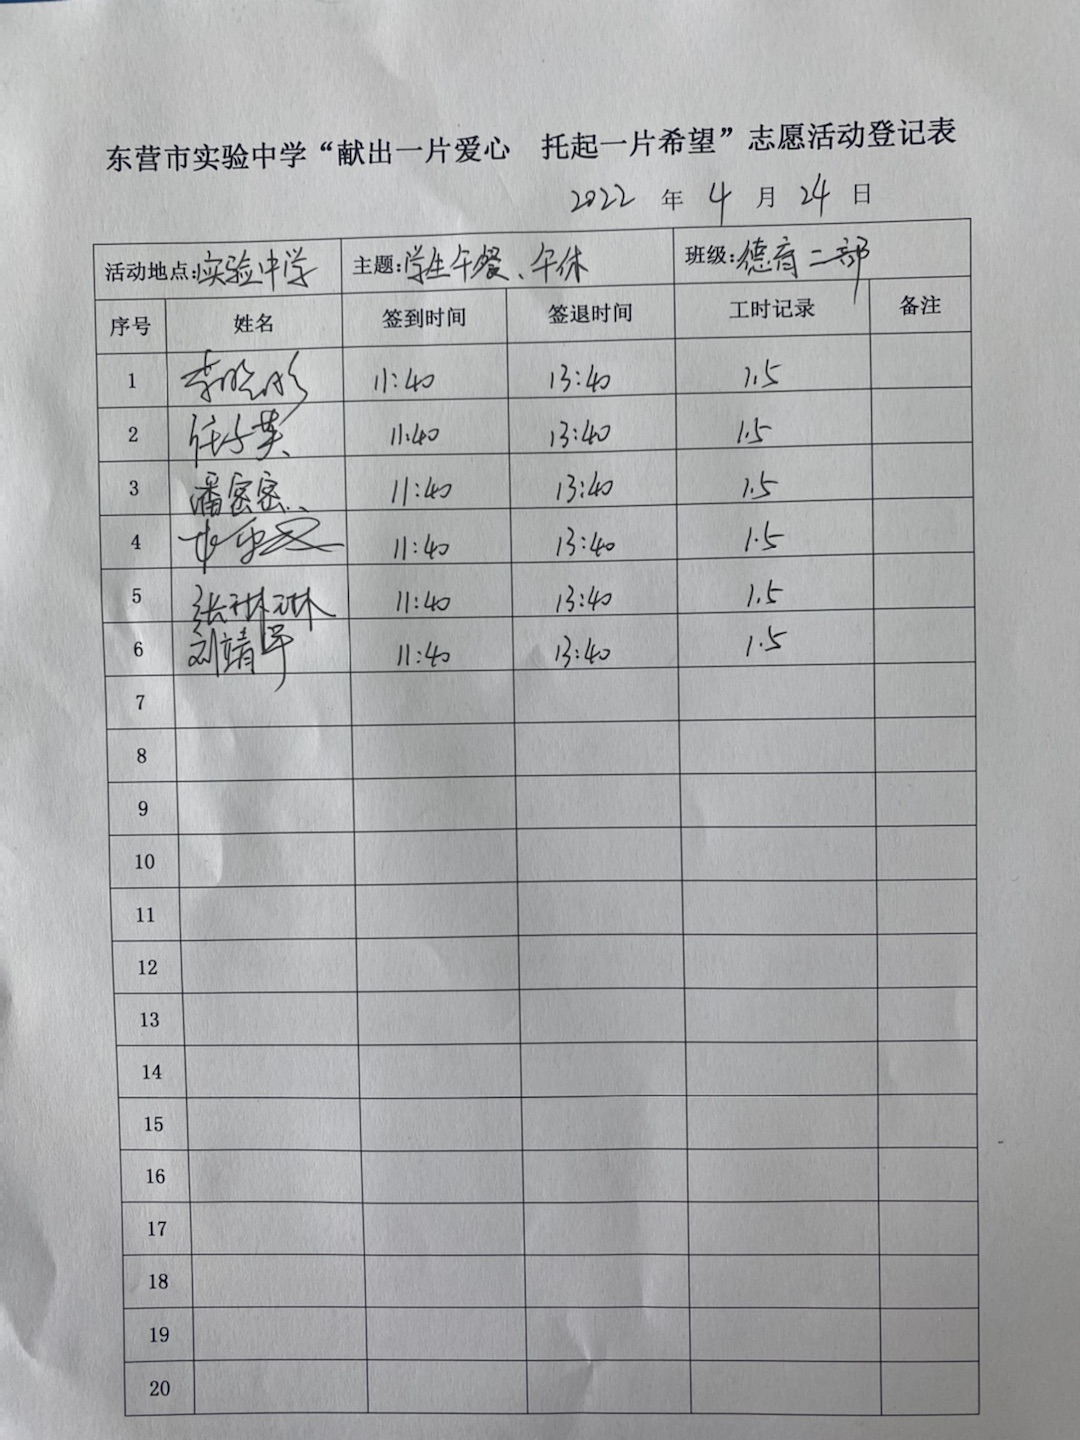 东营市实验中学“献出一片爱心 托起一片希望”志愿活动登记表
2022 年 4 月 24 日
活动地点:实验中学 主题:学生午餐、午休 班级:德育二部
序号 姓名 签到时间 签退时间 工时记录 备注
1 李晓彤 11:40 13:40 1.5
2 任子英 11:40 13:40 1.5
3 潘密密 11:40 13:40 1.5
4 11:40 13:40 1.5
5 张琳琳 11:40 13:40 1.5
6 刘靖 11:40 13:40 1.5
7
8
9
10
11
12
13
14
15
16
17
18
19
20